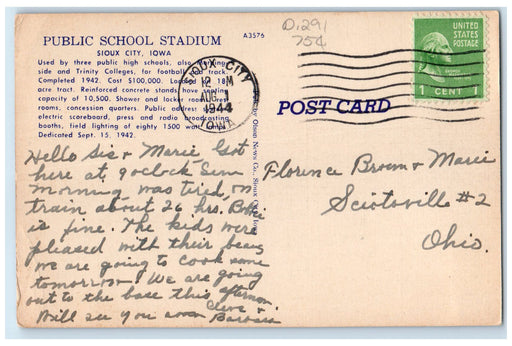 PUBLIC SCHOOL STADIUM
SIOUX CITY, IOWA
Used by three public high schools, also
side and Trinity Colleges, for football track.
Completed 1942. Cost $100,000. 18
acre tract. Reinforced concrete stands have seating
capacity of 10,500. Shower and locker room
rooms, concession quarters. Public address
electric scoreboard, press and radio broadcasting
booths, field lighting of eighty 1500 watt
Dedicated Sept. 15, 1942.
A3576
D.291
75¢
SIOUX CITY
12 M
AUG 1
1944
IOWA
UNITED
STATES
POSTAGE
1 CENT 1
POST CARD
by Olson News Co., Sioux City, Iowa
Hello Sis & Marie Got
here at 9 oclock Sun
morning was tired, on
train about 26 hrs. Bobbie
is fine. The kids were
pleased with their
we are going to cook some
tomorrow. We are going
out to the base this afternoon
Will see you soon Cleve &
Barbara
Florence Brown & Marie
Sciotoville #2
Ohio.